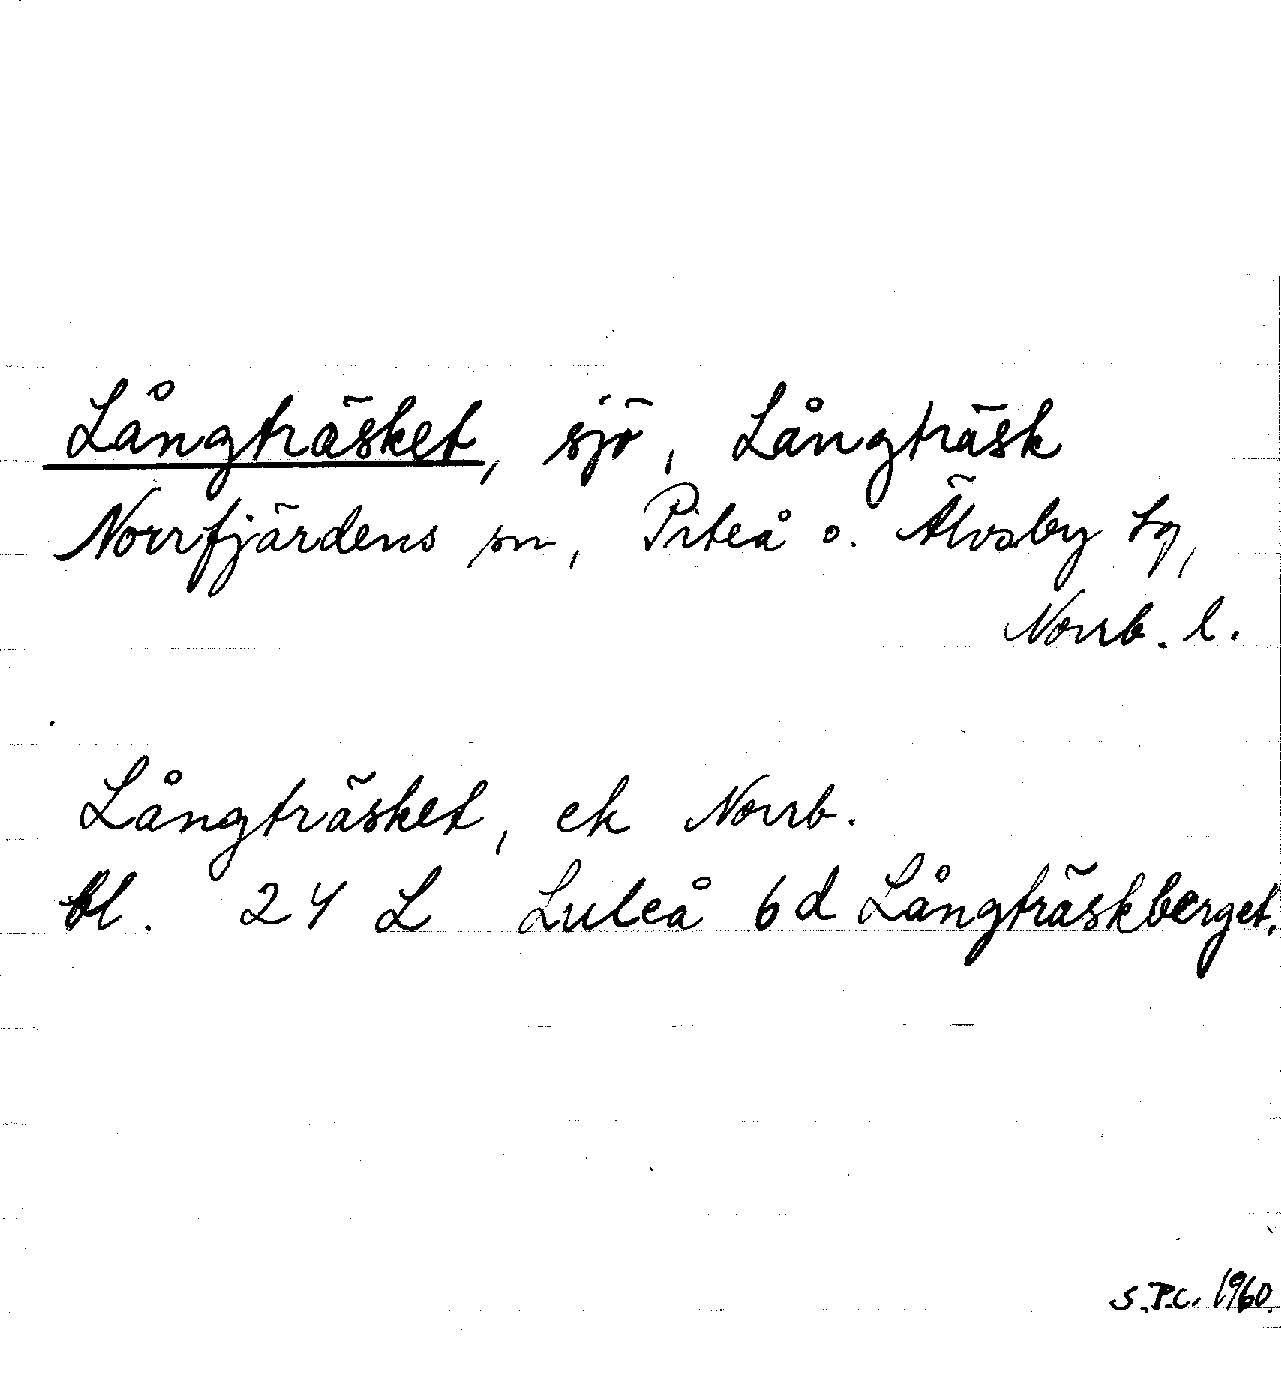 Långträsket, sjö, Långträsk
Norrfjärdens sn, Piteå o. Älvsby tg,
Norrb. l.
Långträsket, ek Norrb.
bl. 24 L Luleå 6d Långträskberget.
S.P.C. 1960